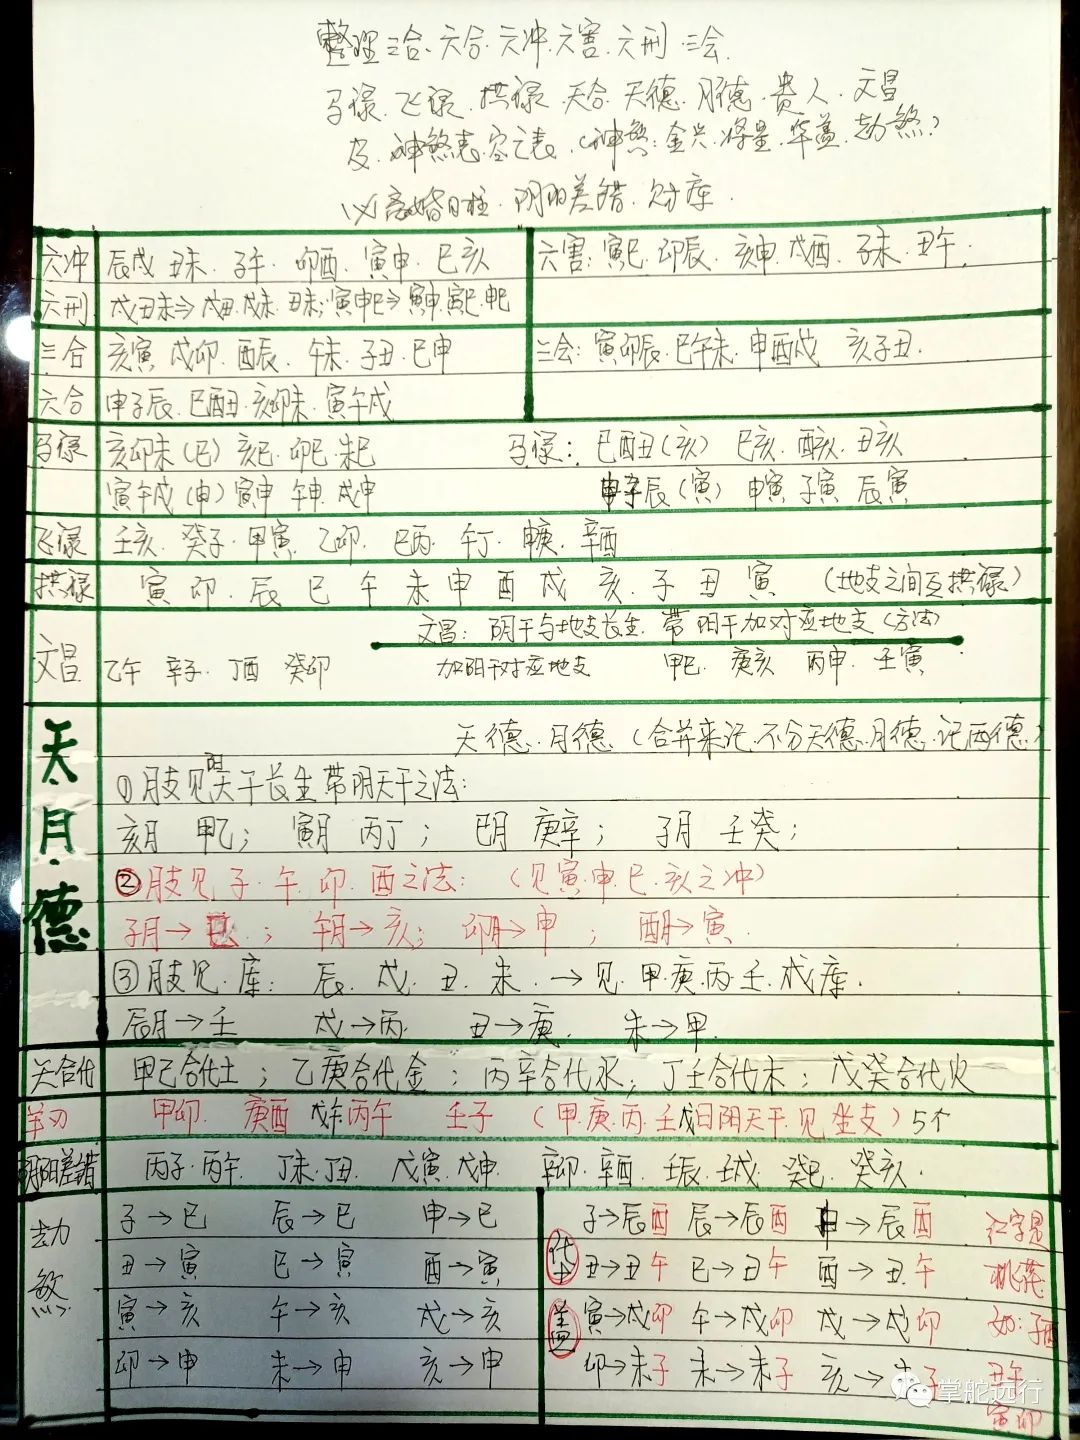 整理三合.六合.六冲.六害.六刑.三会.
马禄.飞禄.拱禄.天合.天德.月德.贵人.文昌
及.神煞表.空亡表.(神煞:金兴.将星.华盖.劫煞)
以离婚日柱.阴阳差错.财库.
六冲 辰戌 丑未.子午.卯酉.寅申.巳亥
六害:寅巳.卯辰.亥申.戌酉.子未.丑午.
六刑 戌丑未⇒戌丑.戌未.丑未;寅申巳⇒寅申.寅巳.申巳
三合 亥寅.戌卯.酉辰.午未.子丑.巳申
三会:寅卯辰.巳午未.申酉戌 亥子丑.
六合 申子辰.巳酉丑.亥卯未.寅午戌
马禄 亥卯未(巳)亥巳.卯巳.未巳
马禄:巳酉丑(亥) 巳亥.酉亥.丑亥
寅午戌(申)寅申 午申.戌申
申子辰(寅) 申寅 子寅 辰寅
飞禄 壬亥.癸子.甲寅.乙卯.巳丙.午丁.申庚.辛酉
拱禄 寅 卯.辰 巳 午 未 申 酉 戌 亥 子 丑 寅 (地支之间互拱禄)
文昌:阴干与地支长生.带阳干加对应地支(方法)
文昌 乙午 辛子.丁酉 癸卯 加阳干对应地支 甲巳.庚亥 丙申.壬寅
天.月.德
天德.月德(合并来记.不分天德.月德.记两德)
①月支见阳天干长生带阴天干之法:
亥月 甲乙; 寅月 丙丁; 巳月 庚辛; 子月 壬癸;
②月支见子.午.卯.酉之法:(见寅.申.巳.亥之冲)
子月→巳; 午月→亥; 卯月→申; 酉月→寅.
③月支见.库: 辰.戌.丑.未.→见.甲.庚.丙.壬.戌库.
辰月→壬 戌→丙. 丑→庚. 未→甲.
天合化 甲己合化土; 乙庚合化金; 丙辛合化水; 丁壬合化木; 戊癸合化火
羊刃 甲卯.庚酉 戊午.丙午 壬子(甲.庚.丙.壬.戊日阳天干.见坐支)5个
阴阳差错 丙子.丙午.丁未.丁丑.戊寅.戊申.辛卯.辛酉.壬辰.壬戌.癸巳.癸亥.
劫煞
子→巳 辰→巳 申→巳
丑→寅 巳→寅 酉→寅
寅→亥 午→亥 戌→亥
卯→申 未→申 亥→申
华盖
子→辰酉 辰→辰酉 申→辰酉 红字是
丑→丑午 巳→丑午 酉→丑午 桃花
寅→戌卯 午→戌卯 戌→戌卯 如:子酉
卯→未子 未→未子 亥→未子 丑午
寅卯
掌舵远行